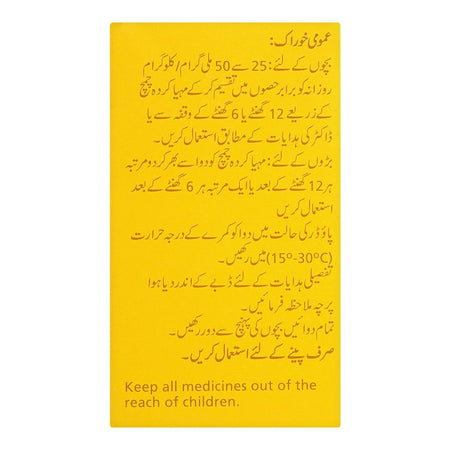 عمومی خوراک:
بچوں کے لئے: 25 سے 50 ملی گرام/کلوگرام
روزانہ کو برابر حصوں میں تقسیم کر کے مہیا کردہ چمچ
کے ذریعے 12 گھنٹے یا 6 گھنٹے کے وقفہ سے یا
ڈاکٹر کی ہدایات کے مطابق استعمال کریں۔
بڑوں کے لئے: مہیا کردہ چمچ کو دوا سے بھر کر دو مرتبہ
ہر 12 گھنٹے کے بعد یا ایک مرتبہ ہر 6 گھنٹے کے بعد
استعمال کریں
پاؤڈر کی حالت میں دوا کو کمرے کے درجہ حرارت
(15º-30ºC) میں رکھیں۔
تفصیلی ہدایات کے لئے ڈبے کے اندر دیا ہوا
پرچہ ملاحظہ فرمائیں۔
تمام دوائیں بچوں کی پہنچ سے دور رکھیں۔
صرف پینے کے لئے استعمال کریں۔
Keep all medicines out of the
reach of children.